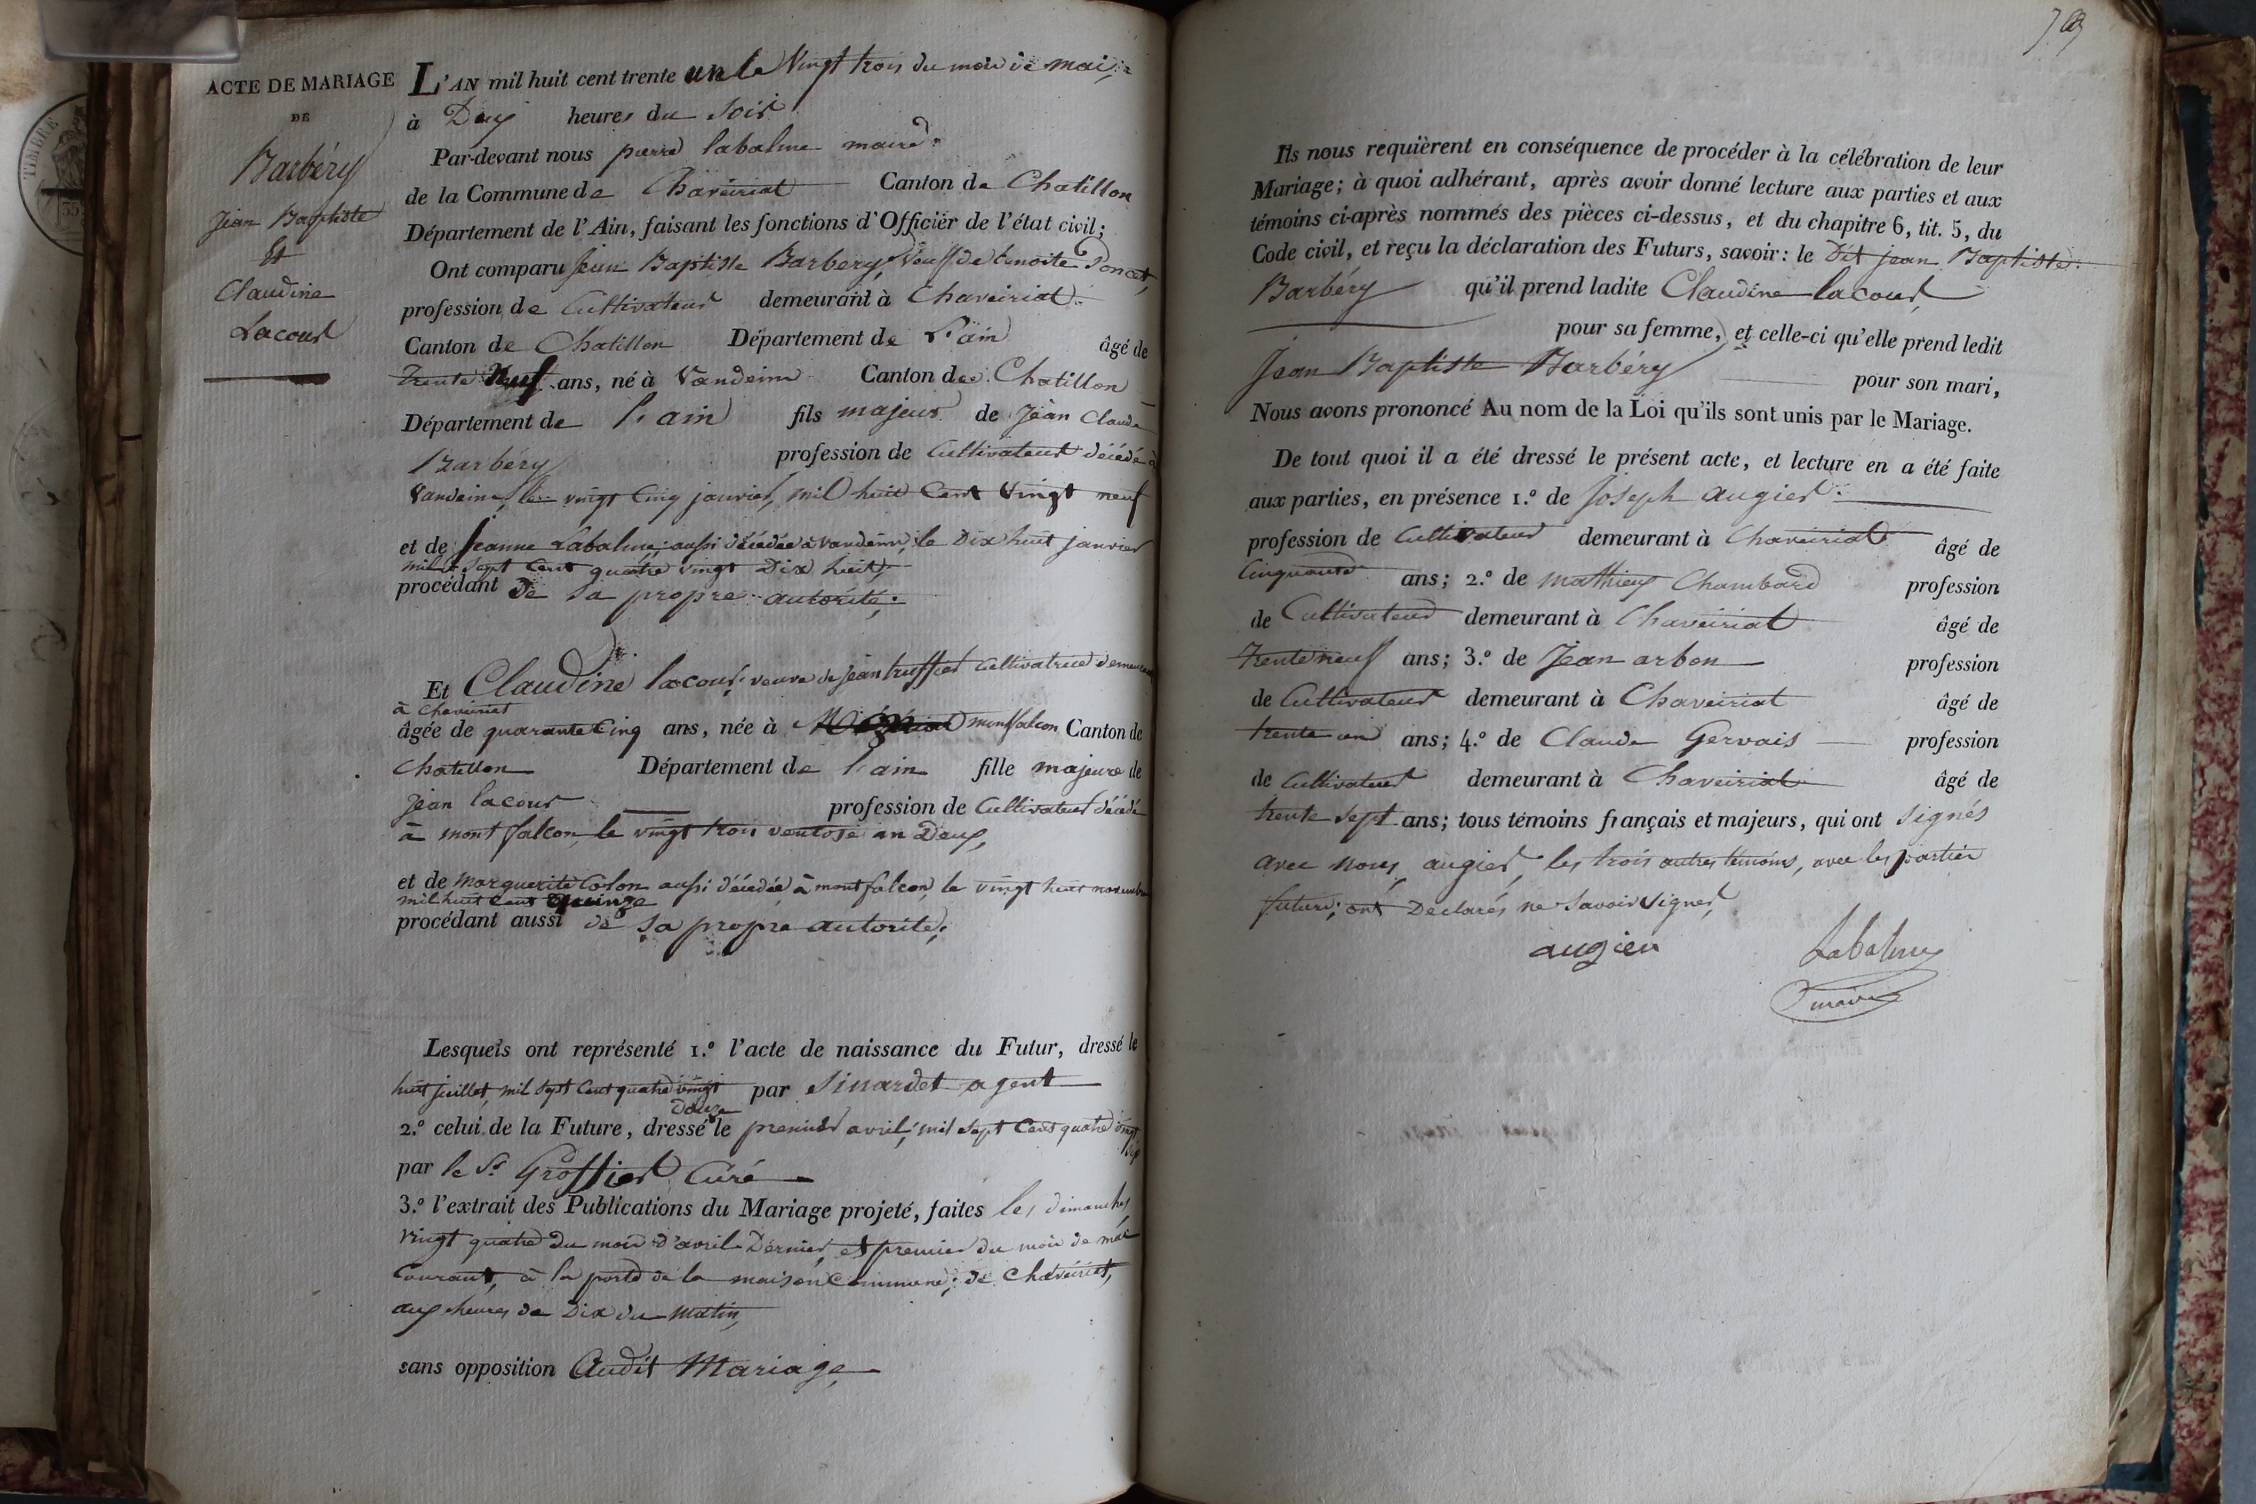 ACTE DE MARIAGE
DE
Barbéry
Jean Baptiste
Et
Claudine
Lacour
TIMBRE
L'AN mil huit cent trente un le Vingt trois du mois de mai,
à Deux heures du Soir
Par-devant nous pierre labalme maire
de la Commune de Chaveiriat Canton de Chatillon
Département de l'Ain, faisant les fonctions d'Officier de l'état civil;
Ont comparu Jean Baptiste Barbery, Veuf de benoite Poncet,
profession de Cultivateur demeurant à Chaveiriat
Canton de Chatillon Département de L'ain âgé de
trente Neuf ans, né à Vandeins Canton de Chatillon
Département de l'ain fils majeur de Jean Claude
Barbéry profession de Cultivateur décédé à
Vandeins, le vingt Cinq janvier, mil huit Cent Vingt neuf
et de Jeanne Labalme; aussi décédée à Vandeins, le Dix huit janvier
mil sept Cent quatre vingt Dix huit,
procédant de sa propre autorité;
Et Claudine lacour; veuve de jean truffier Cultivatrice demeurant
à Chaveiriat
âgée de quarante Cinq ans, née à montfalcon Canton de
Chatillon Département de l'ain fille majeure de
Jean lacour profession de Cultivateur décédé
à mont falcon, le vingt trois ventose an Deux,
et de Marguerite Colon aussi décédée, à mont falcon, le vingt huit novembre
mil huit Cent quinze
procédant aussi de sa propre autorité;
Lesquels ont représenté 1.º l'acte de naissance du Futur, dressé le
huit juillet, mil Sept Cent quatre vingt par Sinardet agent
douze
2.º celui de la Future, dressé le premier avril, mil sept Cent quatre vingt
par le Sr Groffier Curé
3.º l'extrait des Publications du Mariage projeté, faites les dimanches
vingt quatre du mois d'avril Dernier, et premier du mois de mai
Courant, à la porte de la maison Commune; de Chaveiriat,
aux heures de Dix du Matin,
sans opposition Audit Mariage,
Ils nous requièrent en conséquence de procéder à la célébration de leur
Mariage; à quoi adhérant, après avoir donné lecture aux parties et aux
témoins ci-après nommés des pièces ci-dessus, et du chapitre 6, tit. 5, du
Code civil, et reçu la déclaration des Futurs, savoir: le Dit jean Baptiste
Barbéry qu'il prend ladite Claudine lacour
pour sa femme, et celle-ci qu'elle prend ledit
Jean Baptiste Barbéry pour son mari,
Nous avons prononcé Au nom de la Loi qu'ils sont unis par le Mariage.
De tout quoi il a été dressé le présent acte, et lecture en a été faite
aux parties, en présence 1.º de Joseph augier
profession de Cultivateur demeurant à Chaveiriat âgé de
Cinquante ans; 2.º de mathieu Chambard profession
de Cultivateur demeurant à Chaveiriat âgé de
trente neuf ans; 3.º de Jean arbon profession
de Cultivateur demeurant à Chaveiriat âgé de
trente un ans; 4.º de Claude Gervais profession
de Cultivateur demeurant à Chaveiriat âgé de
trente sept ans; tous témoins français et majeurs, qui ont signés
avec nous, augier, les trois autres témoins, avec les parties
futurs, ont Declarés ne Savoir Signer,
augier Labalme
maire